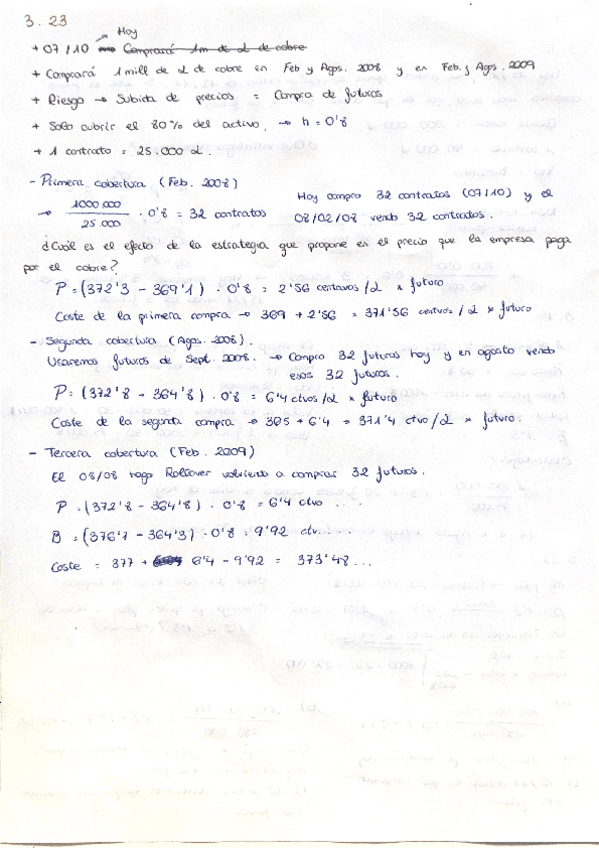 3.23
Hoy
+ 07/10 Comprará 1m de d de cobre
+ Comprará 1 mill de d de cobre en Feb y Agos. 2008 y en Feb. y Agos. 2009
+ Riesgo → Subida de precios = Compra de futuros
+ Solo cubrir el 80% del activo. → h = 0'8
+ 1 contrato = 25.000 d.
- Primera cobertura (Feb. 2008)
→ 1000.000 / 25.000 · 0'8 = 32 contratos
Hoy compro 32 contratos (07/10) y el
08/02/08 vendo 32 contratos.
¿Cuál es el efecto de la estrategia que propone en el precio que la empresa paga
por el cobre?
P = (372'3 - 369'1) · 0'8 = 2'56 centavos/d x futuro
Coste de la primera compra → 369 + 2'56 = 371'56 centvos/d x futuro
- Segunda cobertura (Agos. 2008).
Usaremos futuros de Sept. 2008. → Compro 32 futuros hoy y en agosto vendo
esos 32 futuros.
P = (372'8 - 364'8) · 0'8 = 6'4 ctvos/d x futuro
Coste de la segunda compra → 365 + 6'4 = 371'4 ctvo/d x futuro.
- Tercera cobertura (Feb. 2009)
El 08/08 hago Rollover volviendo a comprar 32 futuros.
P = (372'8 - 364'8) · 0'8 = 6'4 ctvo ....
B = (376'7 - 364'3) · 0'8 = 9'92 ctv...
Coste = 377 + 6'4 - 9'92 = 373'48 ...